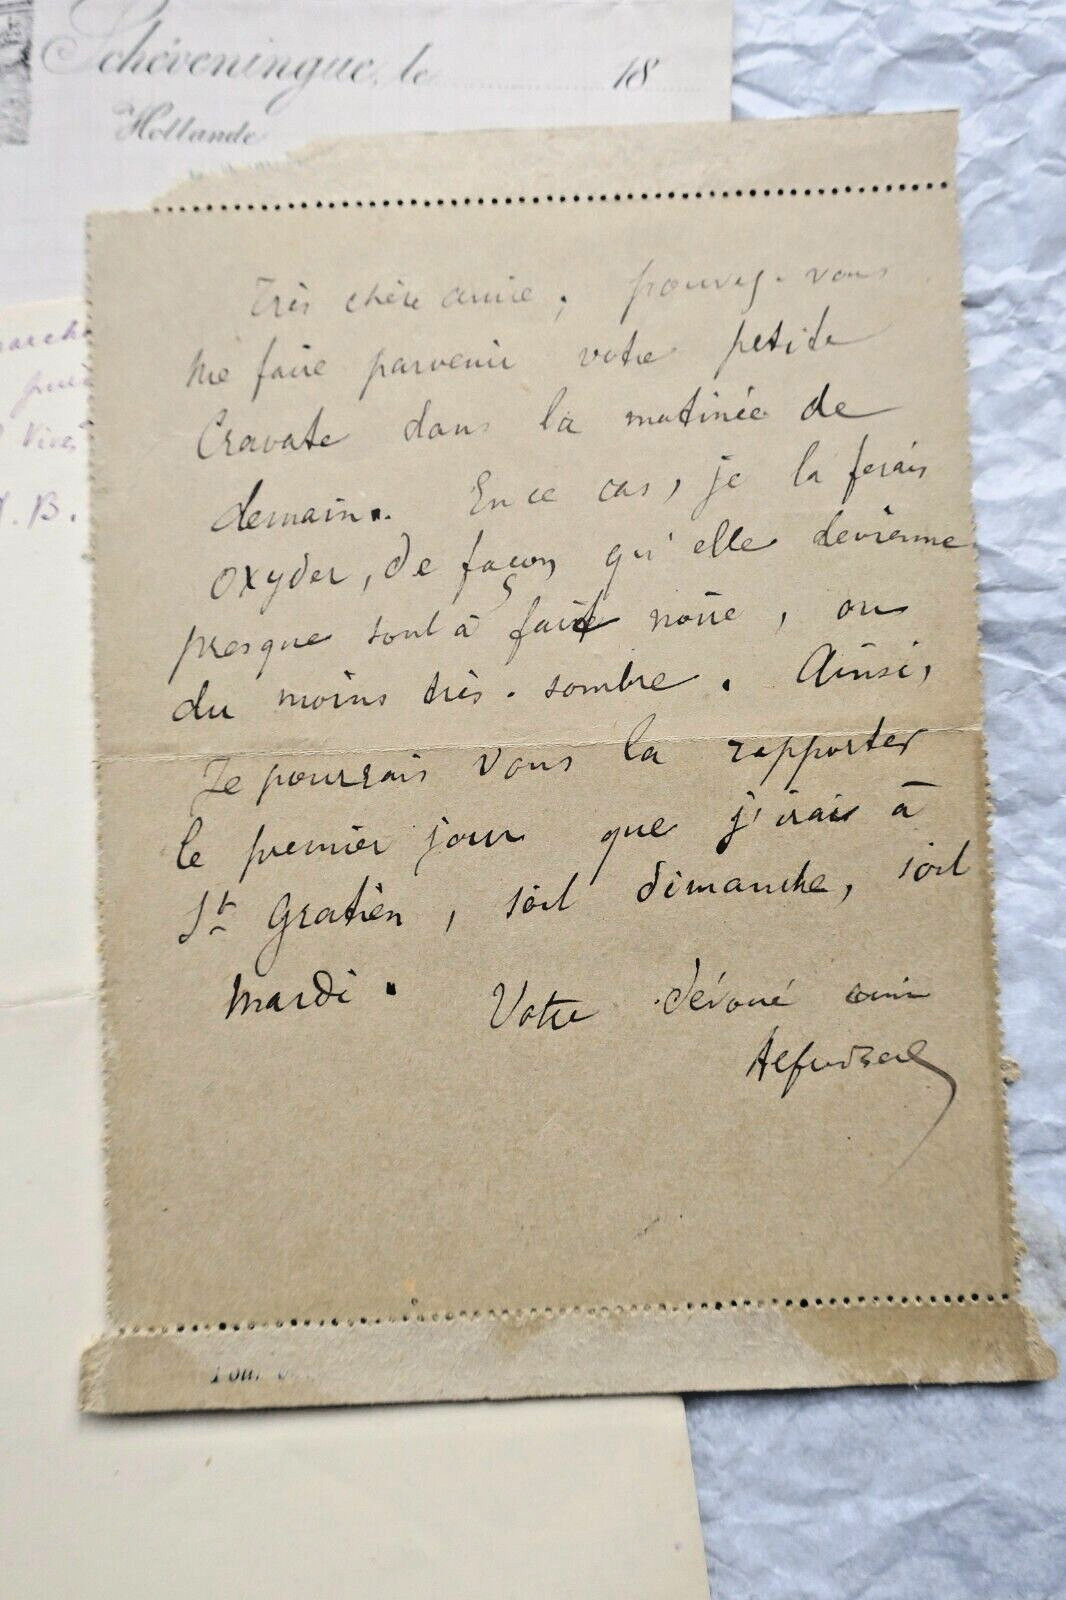 Schéveningue, le 18
Hollande
Très chère amie, pouvez-vous
me faire parvenir votre petite
Cravate dans la matinée de
demain. En ce cas, je la ferais
oxyder, de façon qu'elle devienne
presque tout à fait noire, ou
du moins très-sombre. Ainsi,
Je pourrais vous la rapporter
le premier jour que j'irais à
St Gratien, soit dimanche, soit
mardi. Votre dévoué ami
. B.